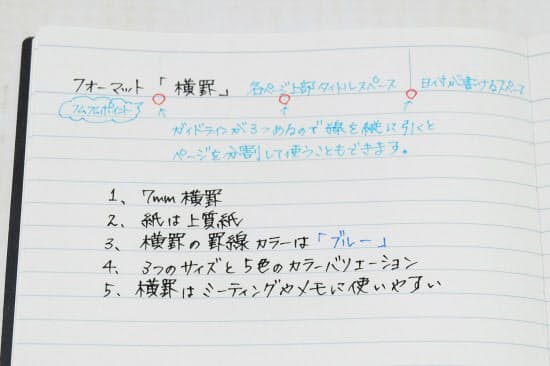 フォーマット「横罫」 各ページ上部タイトルスペース 日付が書けるスペース
フムフムポイント
ガイドラインが3つあるので線を縦に引くと
ページを分割して使うこともできます。
1、7mm横罫
2、紙は上質紙
3、横罫の罫線カラーは「ブルー」
4、3つのサイズと5色のカラーバリエーション
5、横罫はミーティングやメモに使いやすい